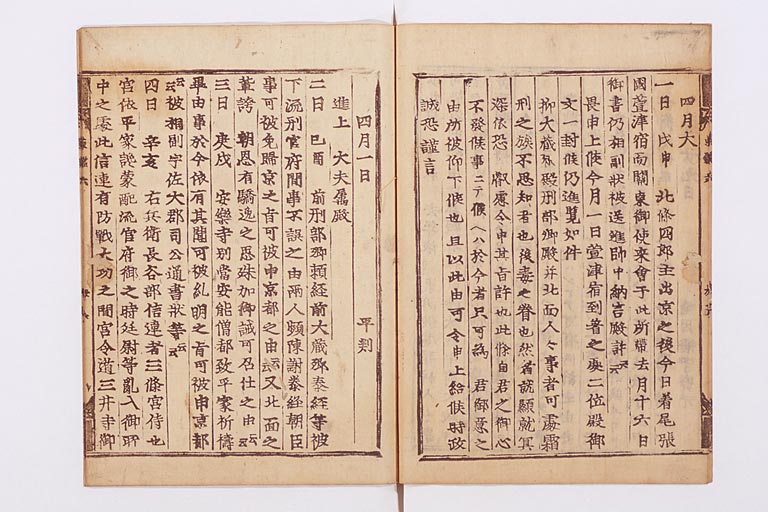 四月大
一日 戊申 北條四郎主出京之後今日着尾張
國萱津宿而關東御使來會于此所帶去月十六日
御書仍相副狀被送進帥中納言殿許云云
畏申上候今月一日萱津宿到著之處二位殿御
文一封候仍進覽如件
抑大藏卿殿刑部卿殿并北面人々事者可處霜
刑之族不思知君也後毒之眷也然者誠願就冥
深依恐 叡慮令申其旨許也此條自君之御心
不發候事ニテ候ヘハ於今者只可爲 君御意之
由所被仰下候也且以此由可令申上給候時政
誠恐謹言
四月一日 平判
進上 大夫屬殿
二日 己酉 前刑部卿頼經前大藏卿泰經等被
下流刑官府間事不誤之由兩人頻陳謝泰經朝臣
事可被免歸京之旨可被申京都之由云云又北面之
輩誇 朝恩有驕逸之思殊加御誡可召仕之由云云
三日 庚戌 安樂寺別當安能僧都致平家祈禱
畢由事於今依有其聞可被糺明之旨可被申京都
云云被相副宇佐大郡司公通書狀等云云
四日 辛亥 右兵衛長谷部信連者三條宮侍也
宮依平家讒蒙配流官府御之時廷尉等亂入御所
中之處此信連有防戰大功之間宮令遁三井寺御